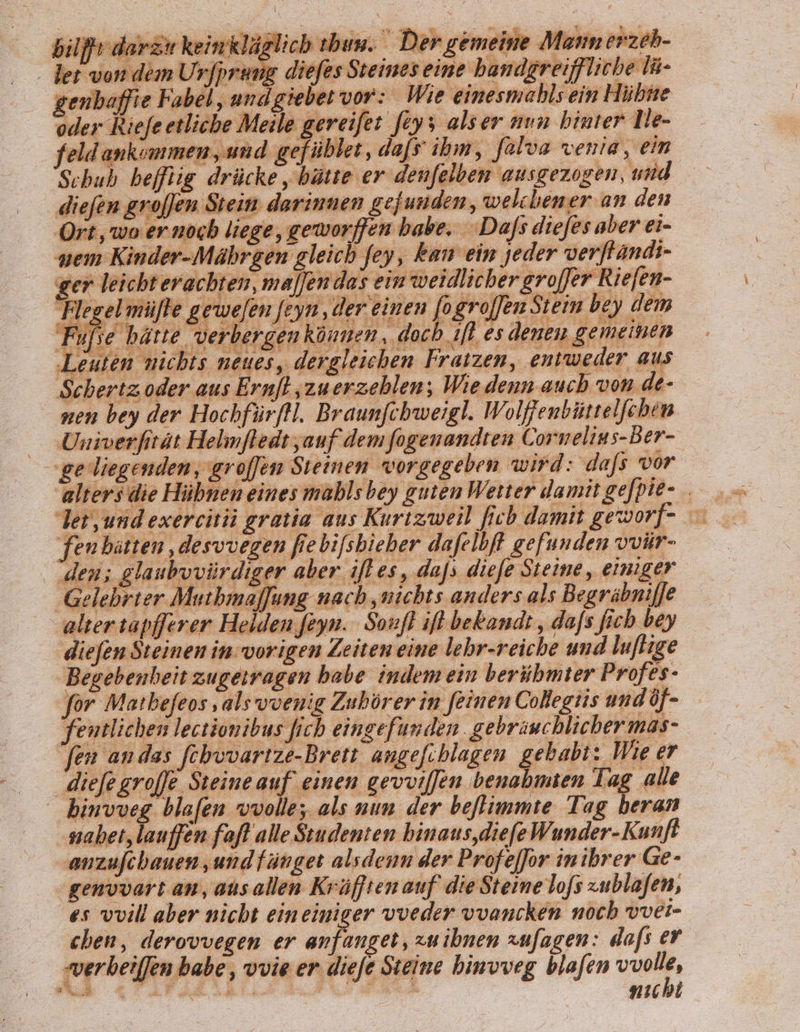 hilfft darzu keinkläglich thun. Der gemeine Mann erzeh-
let von dem Ursprung dieses Steines eine handgreiffliche lü-
genhaffte Fabel, und giebet vor: Wie einesmahls ein Hühne
oder Riese etliche Meile gereiset sey; als er nun hinter Ile-
feld ankommen, und gefühlet, daſs ihm, salva venia, ein
Schuh hefftig drücke, hätte er denselben ausgezogen, und
diesen grossen Stein darinnen gefunden, welchen er an den
Ort, wo er noch liege, geworffen habe. Daſs dieses aber ei-
nem Kinder-Mährgen gleich sey, kan ein jeder verständi-
ger leicht erachten, massen das ein weidlicher grosser Riesen-
Flegel müste gewesen seyn, der einen so grossen Stein bey dem
Fusse hätte verbergen können, doch ist es denen gemeinen
Leuten nichts neues, dergleichen Fratzen, entweder aus
Schertz oder aus Ernst, zu erzehlen; Wie denn auch von de-
nen bey der Hochfürstl. Braunschweigl. Wolffenbüttelschen
Universität Helmstedt, auf dem sogenandten Cornelius-Ber-
ge liegenden, grossen Steinen vorgegeben wird: daſs vor
alters die Hühnen eines mahls bey guten Wetter damit gespie-
let, und exercitii gratia aus Kurtzweil sich damit geworf-
fen hätten, desvvegen sie biſshieher daselbst gefunden vvür-
den; glaubvvürdiger aber ist es, daſs diese Steine, einiger
Gelehrter Muthmassung nach, nichts anders als Begräbnisse
alter tapfferer Helden seyn. Sonst ist bekandt, daſs sich bey
diesen Steinen in vorigen Zeiten eine lehr-reiche und lustige
Begebenheit zugetragen habe indem ein berühmter Profes-
sor Matheseos, als vvenig Zuhörer in seinen Collegiis und öf-
fentlichen lectionibus sich eingefunden gebräuchlicher mas-
sen an das schvvartze-Brett angeschlagen gehabt: Wie er
diese grosse Steine auf einen gevvissen benahmten Tag alle
hinvveg blasen vvolle; als nun der bestimmte Tag heran
nahet, lauffen fast alle Studenten hinaus, diese Wunder-Kunst
anzuschauen, und fänget alsdenn der Professor in ihrer Ge-
genvvart an, aus allen Kräfften auf die Steine loſs zublasen,
es vvill aber nicht ein einiger vveder vvancken noch vvei-
chen, derovvegen er anfanget, zu ihnen zusagen: daſs er
verheissen habe, vvie er diese Steine hinvveg blasen vvolle,
nicht